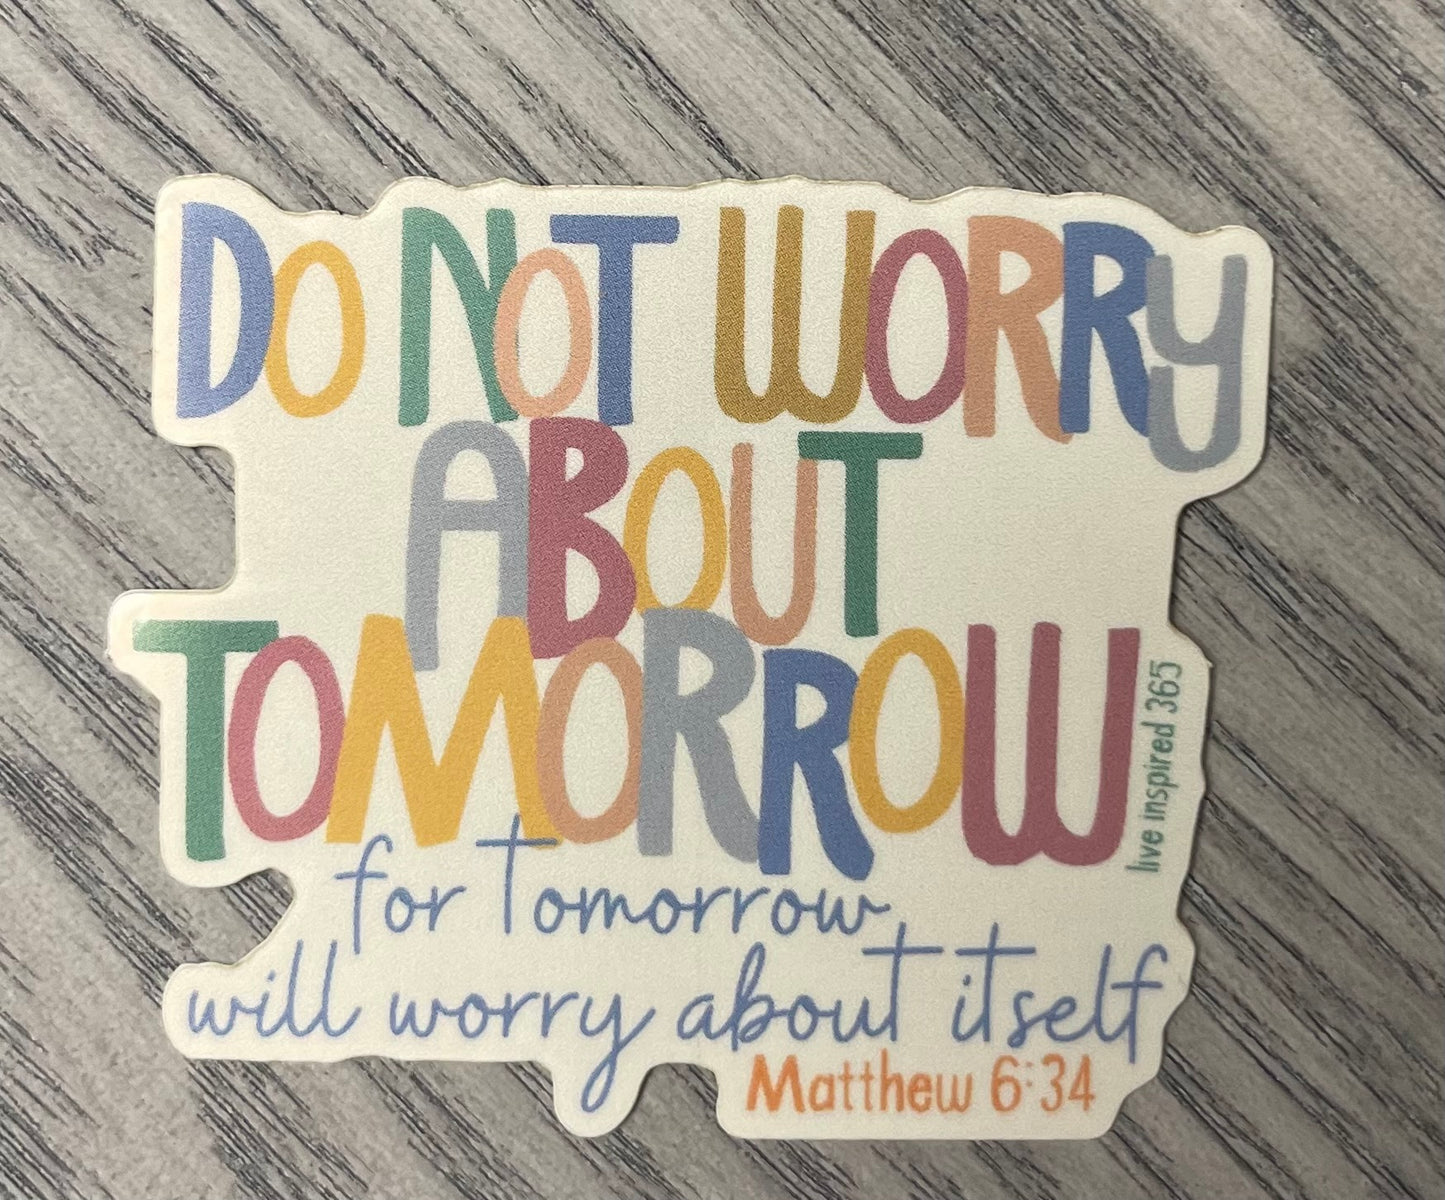 DO NOT WORRY
ABOUT
TOMORROW
for tomorrow
will worry about itself
Matthew 6:34
live inspired 365